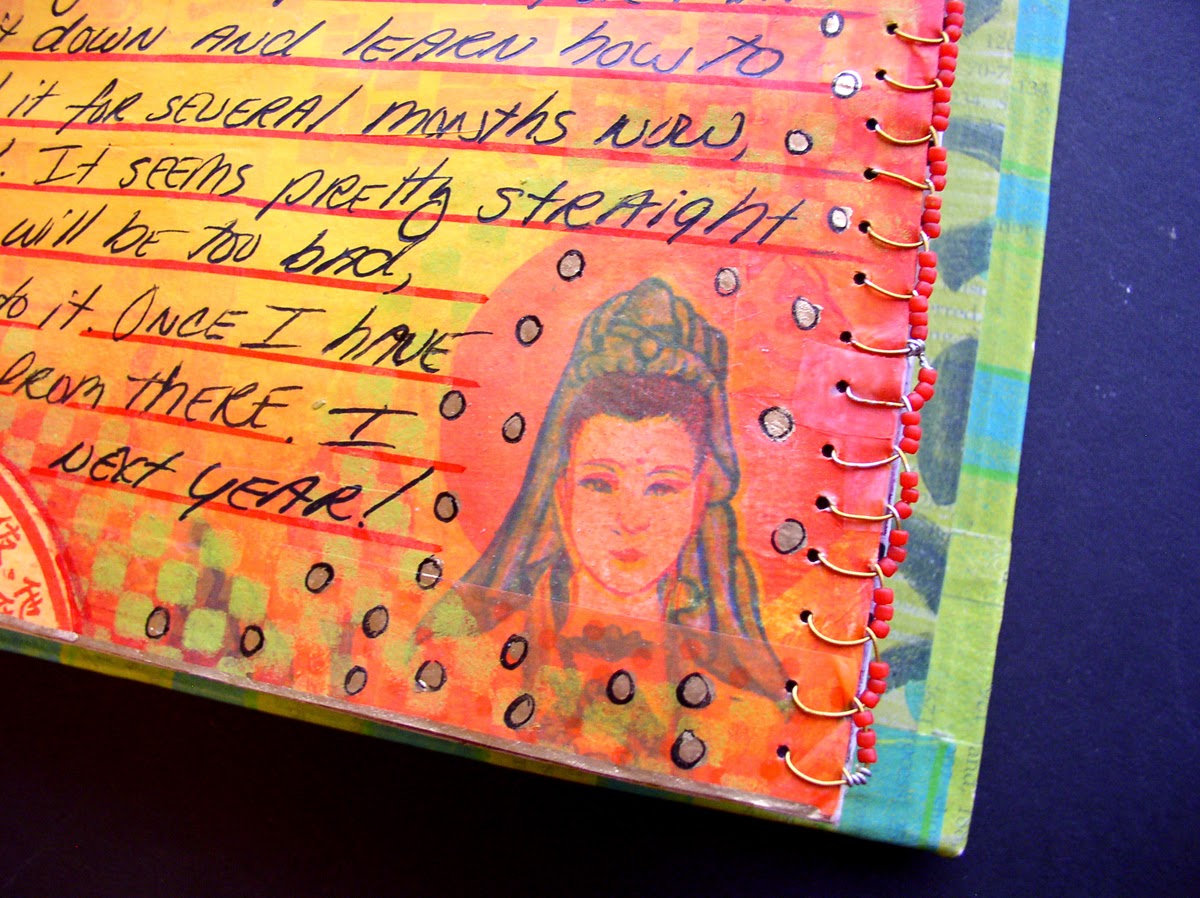 down and learn how to
it for several months now,
It seems pretty straight
will be too bad,
do it. Once I have
from there. I
next year!